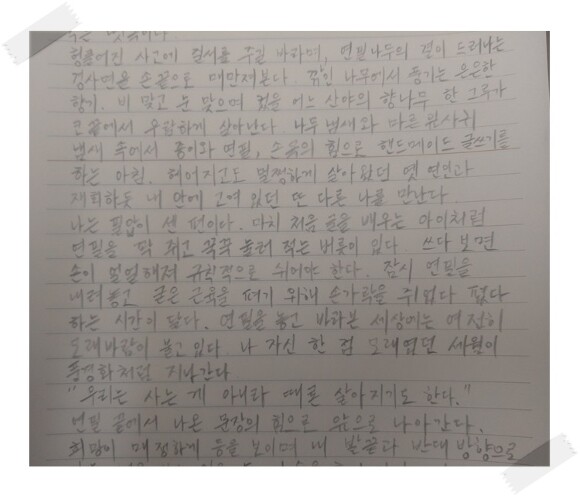 헝클어진 사고에 질서를 주길 바라며, 연필나무의 결이 드러나는
경사면을 손끝으로 매만져본다. 깎인 나무에서 풍기는 은은한
향기. 비 맞고 눈 맞으며 컸을 어느 산야의 향나무 한 그루가
코끝에서 우람하게 살아난다. 나무 냄새와 마른 잎사귀
냄새 속에서 종이와 연필, 손목의 힘으로 핸드메이드 글쓰기를
하는 아침. 헤어지고도 멀쩡하게 살아왔던 옛 연인과
재회하듯 내 안에 고여 있던 또 다른 나를 만난다.
나는 필압이 센 편이다. 마치 처음 글을 배우는 아이처럼
연필을 딱 쥐고 꾹꾹 눌러 적는 버릇이 있다. 쓰다 보면
손이 얼얼해져 규칙적으로 쉬어야 한다. 잠시 연필을
내려놓고 굳은 근육을 펴기 위해 손가락을 쥐었다 폈다
하는 시간이 달다. 연필을 놓고 바라본 세상에는 여전히
모래바람이 불고 있다. 나 자신 한 점 모래였던 세월이
풍경화처럼 지나간다
"우리는 사는 게 아니라 때론 살아지기도 한다."
연필 끝에서 나온 문장의 힘으로 앞으로 나아간다.
희망이 매정하게 등을 보이며 내 발끝과 반대 방향으로